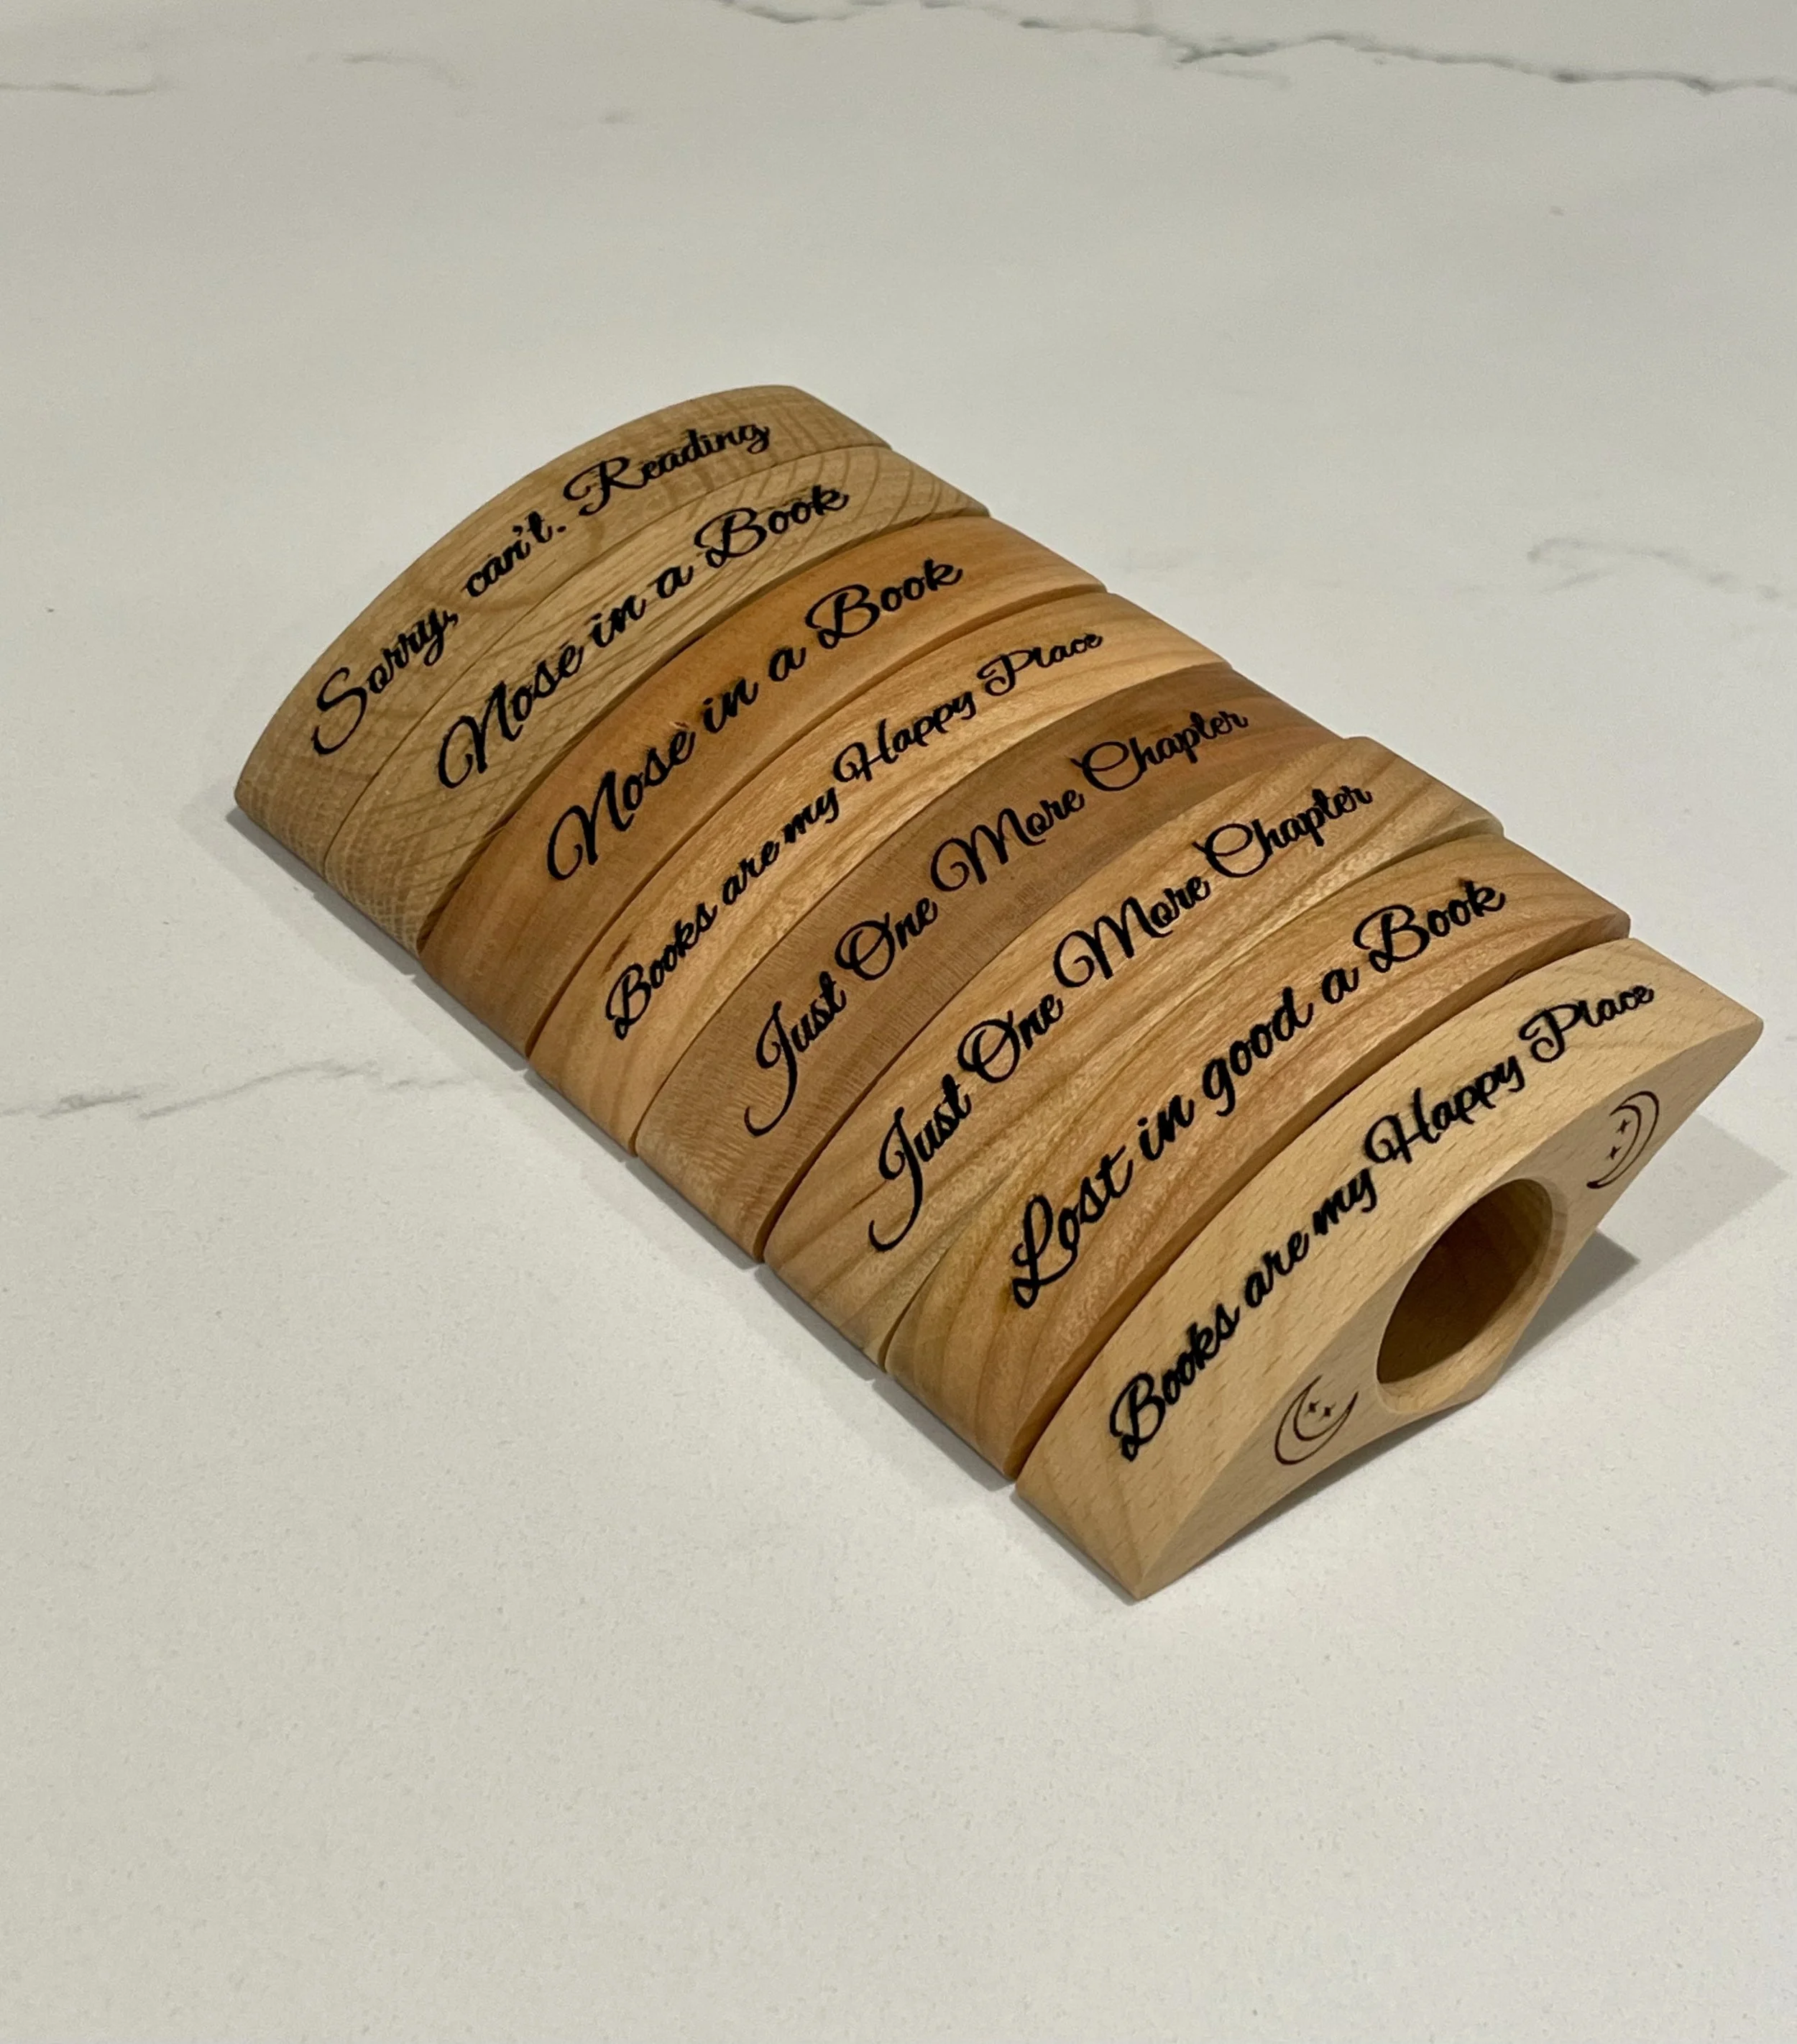 Sorry, can't. Reading
Nose in a Book
Nose in a Book
Books are my Happy Place
Just One More Chapter
Just One More Chapter
Lost in good a Book
Books are my Happy Place